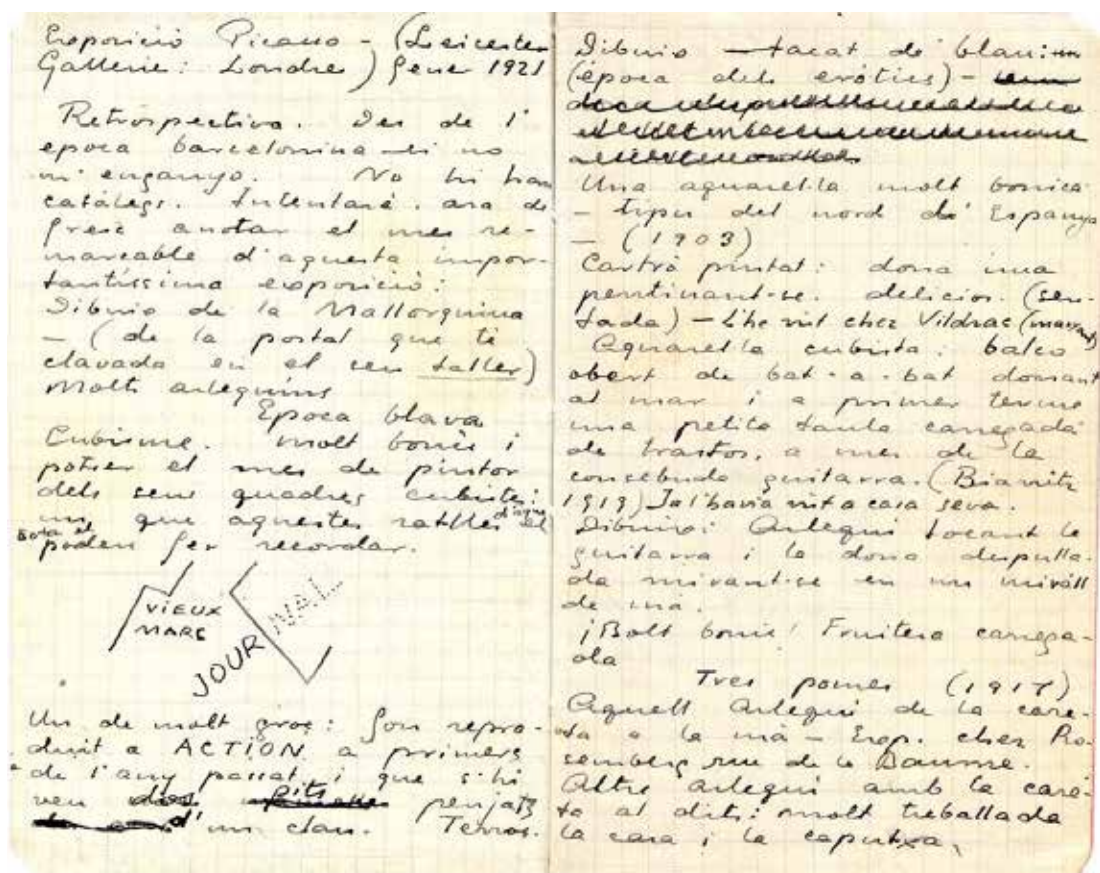 Exposició Picasso - (Leicester
Gallerie: Londres) gener 1921
Retrospectiva. Des de l'
epoca barcelonina - si no
m'enganyo. No hi han
catàlegs. Intentaré ara de
fresc anotar el mes re-
marcable d'aquesta impor-
tantíssima exposició:
Dibuix de la Mallorquina
- (de la postal que té
clavada en el seu taller)
Molts arlequins
Epoca blava
Cubisme. molt bonic i
potser el mes de pintor
dels seus quadres cubistes:
un que aquestes ratlles d'aquí
sota el poden fer recordar.
VIEUX
MARC
JOURNAL
Un de molt gros: fou repro-
duit a ACTION a primers
de l'any passat i que s'hi
veu dos pits penjats
d'un clau. Terros.
Dibuix - tacat de blau: un
(època dels eròtics) -
Una aquarel·la molt bonica
- tipus del nord de Espanya
- (1903)
Cartró pintat: dona nua
pentinant-se. deliciós. (sen-
tada) - L'he vist chez Vildrac (marxant)
Aquarel·la cubista: balco
obert de bat-a-bat donant
al mar i a primer terme
una petita taula carregada
de trastos, a mes de la
consebuda guitarra. (Biarritz
1919) Ja l'havia vist a casa seva.
Dibuixos: Arlequi tocant la
guitarra i la dona despulla-
da mirant-se en un mirall
de mà.
¡Molt bonic! Fruitera carrega-
da
Tres pomes (1917)
Aquell Arlequi de la care-
ta a la mà - Exp. chez Ro-
semberg rue de la Baume.
Altre arlequi amb la care-
ta al dits: molt treballada
la cara i la caputxa.